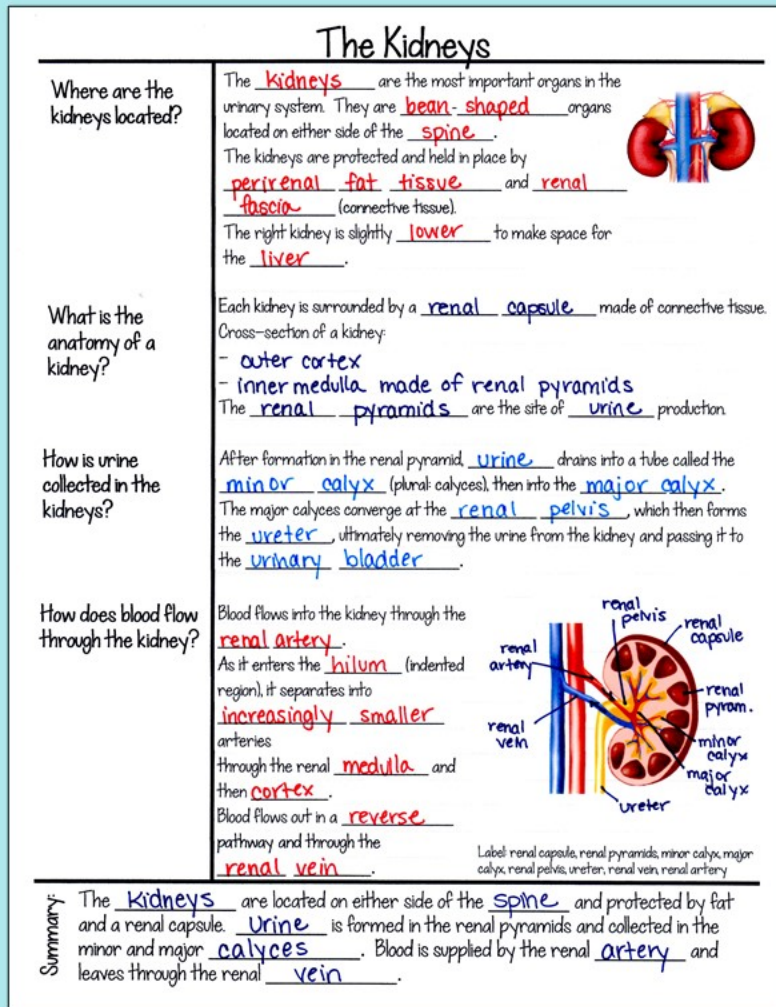 The Kidneys
Where are the
kidneys located?
The kidneys are the most important organs in the
urinary system. They are bean-shaped organs
located on either side of the spine.
The kidneys are protected and held in place by
perirenal fat tissue and renal
fascia (connective tissue).
The right kidney is slightly lower to make space for
the liver.
What is the
anatomy of a
kidney?
Each kidney is surrounded by a renal capsule made of connective tissue.
Cross-section of a kidney:
- outer cortex
- inner medulla made of renal pyramids
The renal pyramids are the site of urine production.
How is urine
collected in the
kidneys?
After formation in the renal pyramid, urine drains into a tube called the
minor calyx (plural: calyces), then into the major calyx.
The major calyces converge at the renal pelvis, which then forms
the ureter, ultimately removing the urine from the kidney and passing it to
the urinary bladder.
How does blood flow
through the kidney?
Blood flows into the kidney through the
renal artery.
As it enters the hilum (indented
region), it separates into
increasingly smaller
arteries
through the renal medulla and
then cortex.
Blood flows out in a reverse
pathway and through the
renal vein.
renal
pelvis
renal
capsule
renal
artery
renal
pyram.
renal
vein
minor
calyx
major
calyx
ureter
Label: renal capsule, renal pyramids, minor calyx, major
calyx, renal pelvis, ureter, renal vein, renal artery
Summary:
The kidneys are located on either side of the spine and protected by fat
and a renal capsule. Urine is formed in the renal pyramids and collected in the
minor and major calyces. Blood is supplied by the renal artery and
leaves through the renal vein.